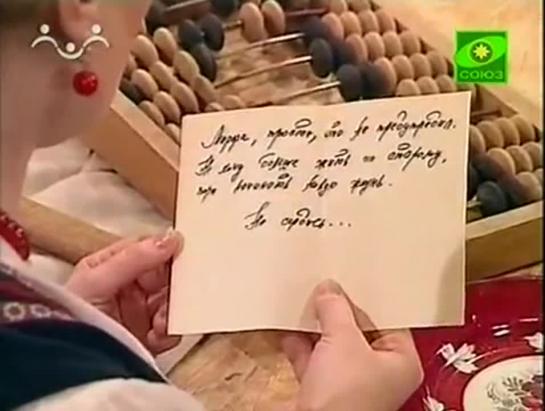 СОЮЗ
Марфа, прости, что не предупредил.
Не могу больше жить по старому,
хочу начать новую жизнь.
Не сердись...